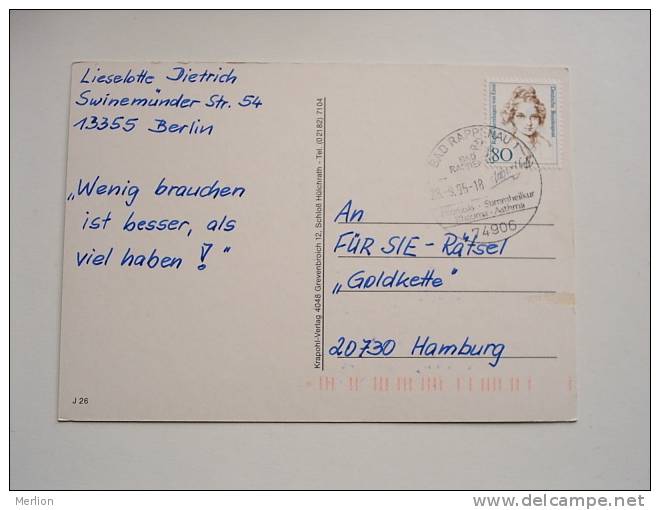 Lieselotte Dietrich
Swinemünder Str. 54
13355 Berlin
„Wenig brauchen
ist besser, als
viel haben !"
J 26
Krapohl-Verlag 4048 Grevenbroich 12, Schloß Hülchrath - Tel. (0 21 82) 71 04
Deutsche Bundespost
80
BAD RAPPENAU 1
BAD
-9.95-18
74906
An
FÜR SIE - Rätsel
„Goldkette"
20730 Hamburg
Merlion
www.delcampe.net